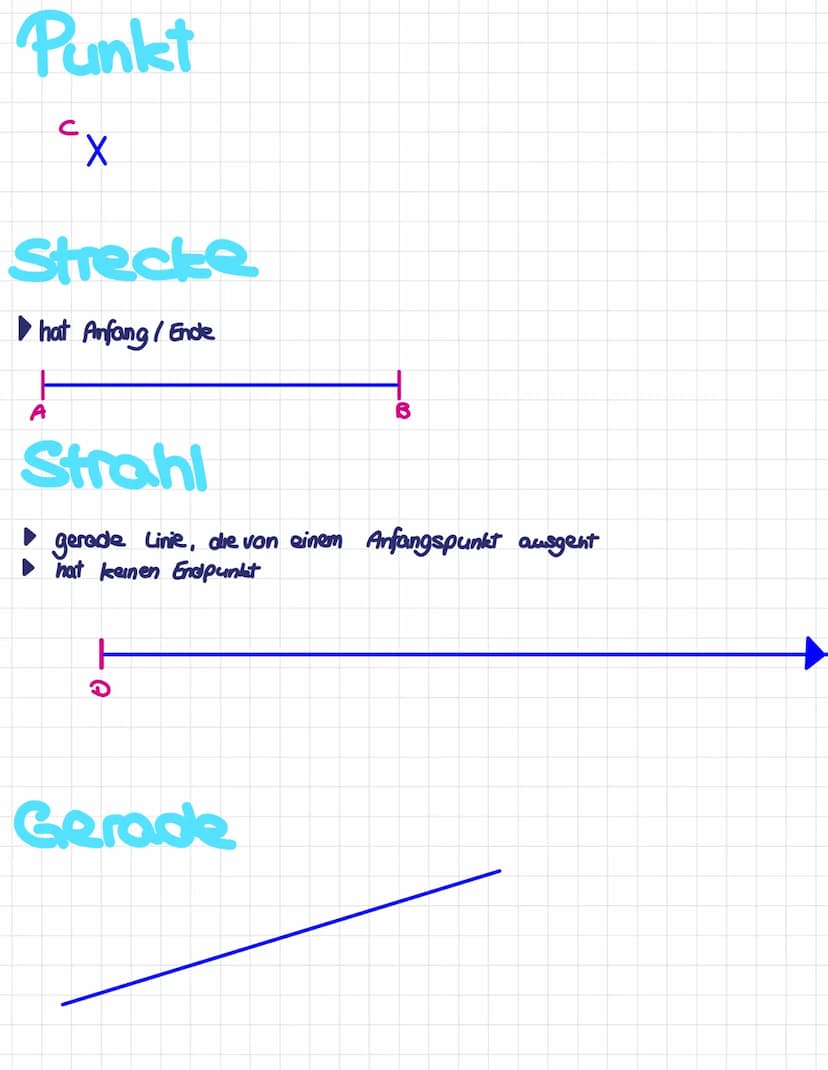 Punkt
C
Strecke
hat Anfang / Ende
A B
Strahl
gerade Linie, die von einem Anfangspunkt ausgeht
hat keinen Endpunkt
D
Gerade